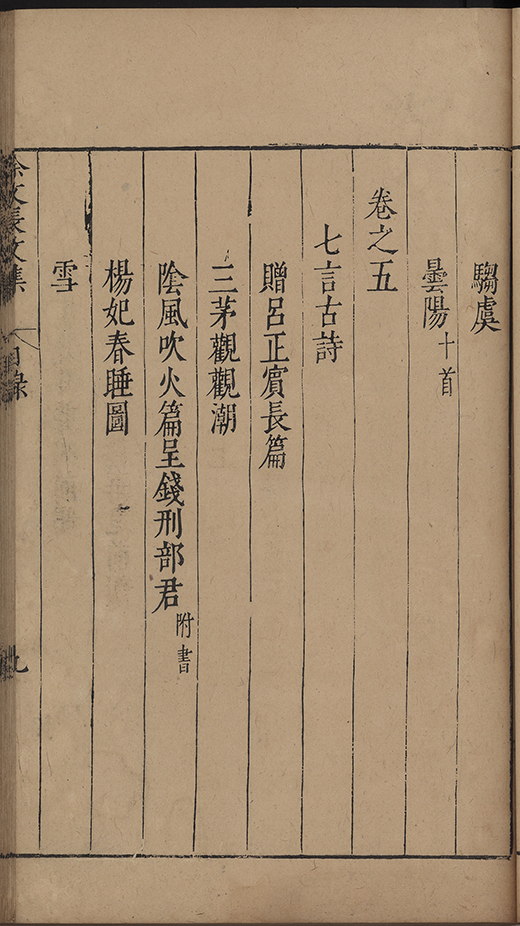 騶虞
曇陽十首
卷之五
七言古詩
贈呂正賓長篇
三茅觀觀潮
陰風吹火篇呈錢刑部君附書
楊妃春睡圖
雪
徐文長文集 目錄 九